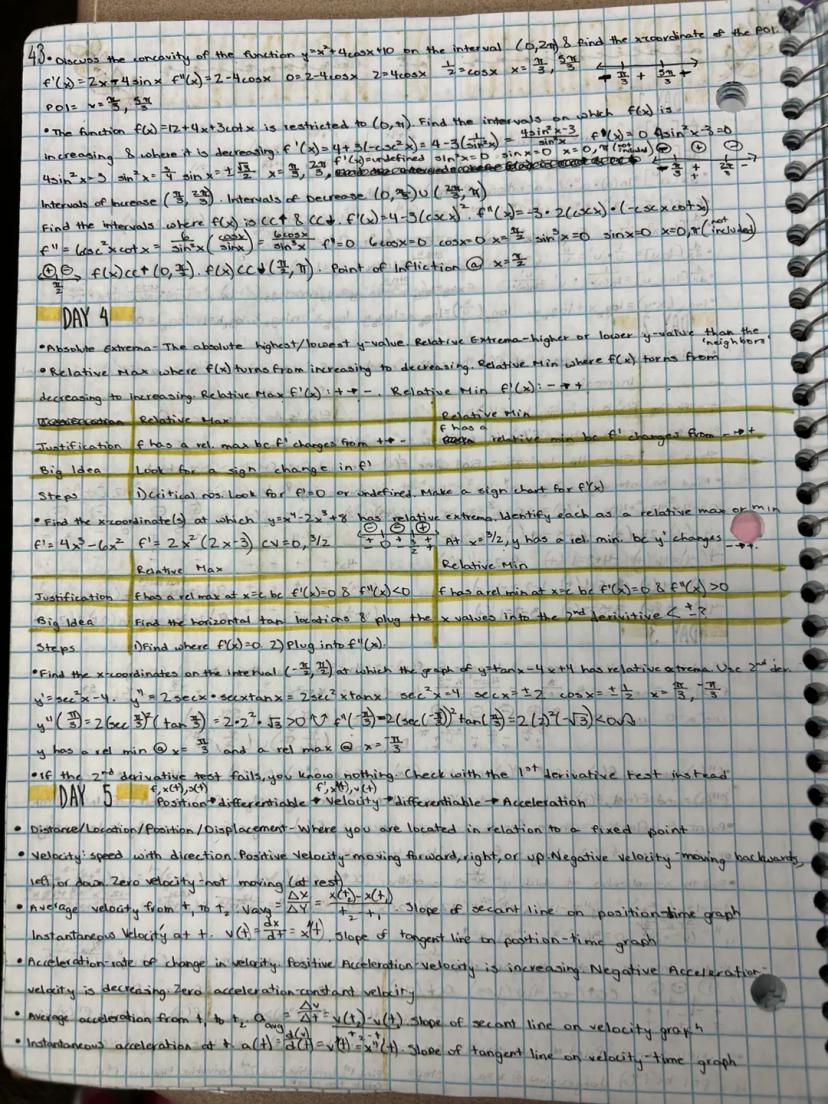 4.3 • Discuss the concavity of the function y=x²+4cosx+10 on the interval (0,2π) & find the x-coordinate of the POI.
f'(x)=2x-4sinx f"(x)=2-4cosx 0=2-4cosx 2=4cosx 1/2=cosx x=π/3, 5π/3 - π/3 + 5π/3 -
POI= x=π/3, 5π/3
• The function f(x)=12+4x+3cotx is restricted to (0,π). Find the intervals on which f(x) is
increasing & where it is decreasing. f'(x)=4+3(-csc²x)=4-3(1/sin²x)=4sin²x-3/sin²x f'(x)=0 4sin²x-3=0
4sin²x=3 sin²x=3/4 sinx=±√3/2 x=π/3, 2π/3, f'(x)=undefined sin²x=0 sinx=0 x=0,π (not included)
Intervals of Increase (π/3, 2π/3). Intervals of Decrease (0,π/3)∪(2π/3,π)
Find the intervals where f(x) is CC↑ & CC↓. f'(x)=4-3(cscx)² f"(x)=-3·2(cscx)·(-cscxcotx)
f"=6csc²xcotx=6/sin²x(cosx/sinx)=6cosx/sin³x f"=0 6cosx=0 cosx=0 x=π/2 sin³x=0 sinx=0 x=0,π (not included)
⊕ ⊖ π/2 f(x) CC↑ (0,π/2). f(x) CC↓ (π/2,π). Point of Infliction @ x=π/2
DAY 4
• Absolute Extrema- The absolute highest/lowest y-value. Relative Extrema-higher or lower y-value than the "neighbors"
• Relative Max where f(x) turns from increasing to decreasing. Relative Min where f(x) turns from
decreasing to increasing. Relative Max f'(x): + → -. Relative Min f'(x): - → +
Relative Max Relative Min
Justification f has a rel. max bc f' changes from +→- f has a relative min bc f' changes from -→+
Big Idea Look for a sign change in f'
Steps 1) Critical nos. Look for f'=0 or undefined. Make a sign chart for f'(x)
• Find the x-coordinate(s) at which y=x⁴-2x³+8 has relative extrema. Identify each as a relative max or min
f'=4x³-6x² f'=2x²(2x-3) CV=0, 3/2 ⊖ ⊖ ⊕ At x=3/2, y has a rel. min. bc y' changes -→+.
Relative Max Relative Min
Justification f has a rel max at x=c bc f'(x)=0 & f"(x)<0 f has a rel min at x=c bc f'(x)=0 & f"(x)>0
Big Idea Find the horizontal tan locations & plug the x values into the 2nd derivitive < ±?
Steps 1) Find where f'(x)=0 2) Plug into f"(x).
• Find the x-coordinates on the interval (-π/2, π/2) at which the graph of y=tanx-4x+4 has relative extrema. Use 2nd der.
y'=sec²x-4. y"=2secx·secxtanx=2sec²xtanx sec²x=4 secx=±2 cosx=±1/2 x=π/3, -π/3
y"(π/3)=2(sec π/3)²(tan π/3)=2·2²·√3>0 f"(-π/3)=2(sec(-π/3))²tan(π/3)=2(2)²(-√3)<0
y has a rel min @ x=π/3 and a rel max @ x=-π/3
• If the 2nd derivative test fails, you know nothing. Check with the 1st derivative test instead
DAY 5 f, x(t), s(t) f', x'(t), v(t)
Position → differentiable → Velocity → differentiable → Acceleration
• Distance/Location/Position/Displacement-Where you are located in relation to a fixed point
• Velocity: speed with direction. Positive Velocity-moving forward, right, or up. Negative velocity-moving backwards,
left, or down. Zero velocity-not moving (at rest)
• Average velocity from t₁ to t₂. Vavg=Δx/ΔY=x(t₂)-x(t₁)/t₂-t₁. Slope of secant line on position-time graph
Instantaneous Velocity at t. v(t)=dx/dt=x'(t). Slope of tangent line on position-time graph
• Acceleration-rate of change in velocity. Positive Acceleration-velocity is increasing. Negative Acceleration-
velocity is decreasing. Zero acceleration-constant velocity
• Average acceleration from t₁ to t₂. aavg=Δv/Δt=v(t₂)-v(t₁)/t₂-t₁. Slope of secant line on velocity graph
• Instantaneous acceleration at t. a(t)=d(v)/d(t)=v'(t)=x"(t). Slope of tangent line on velocity-time graph